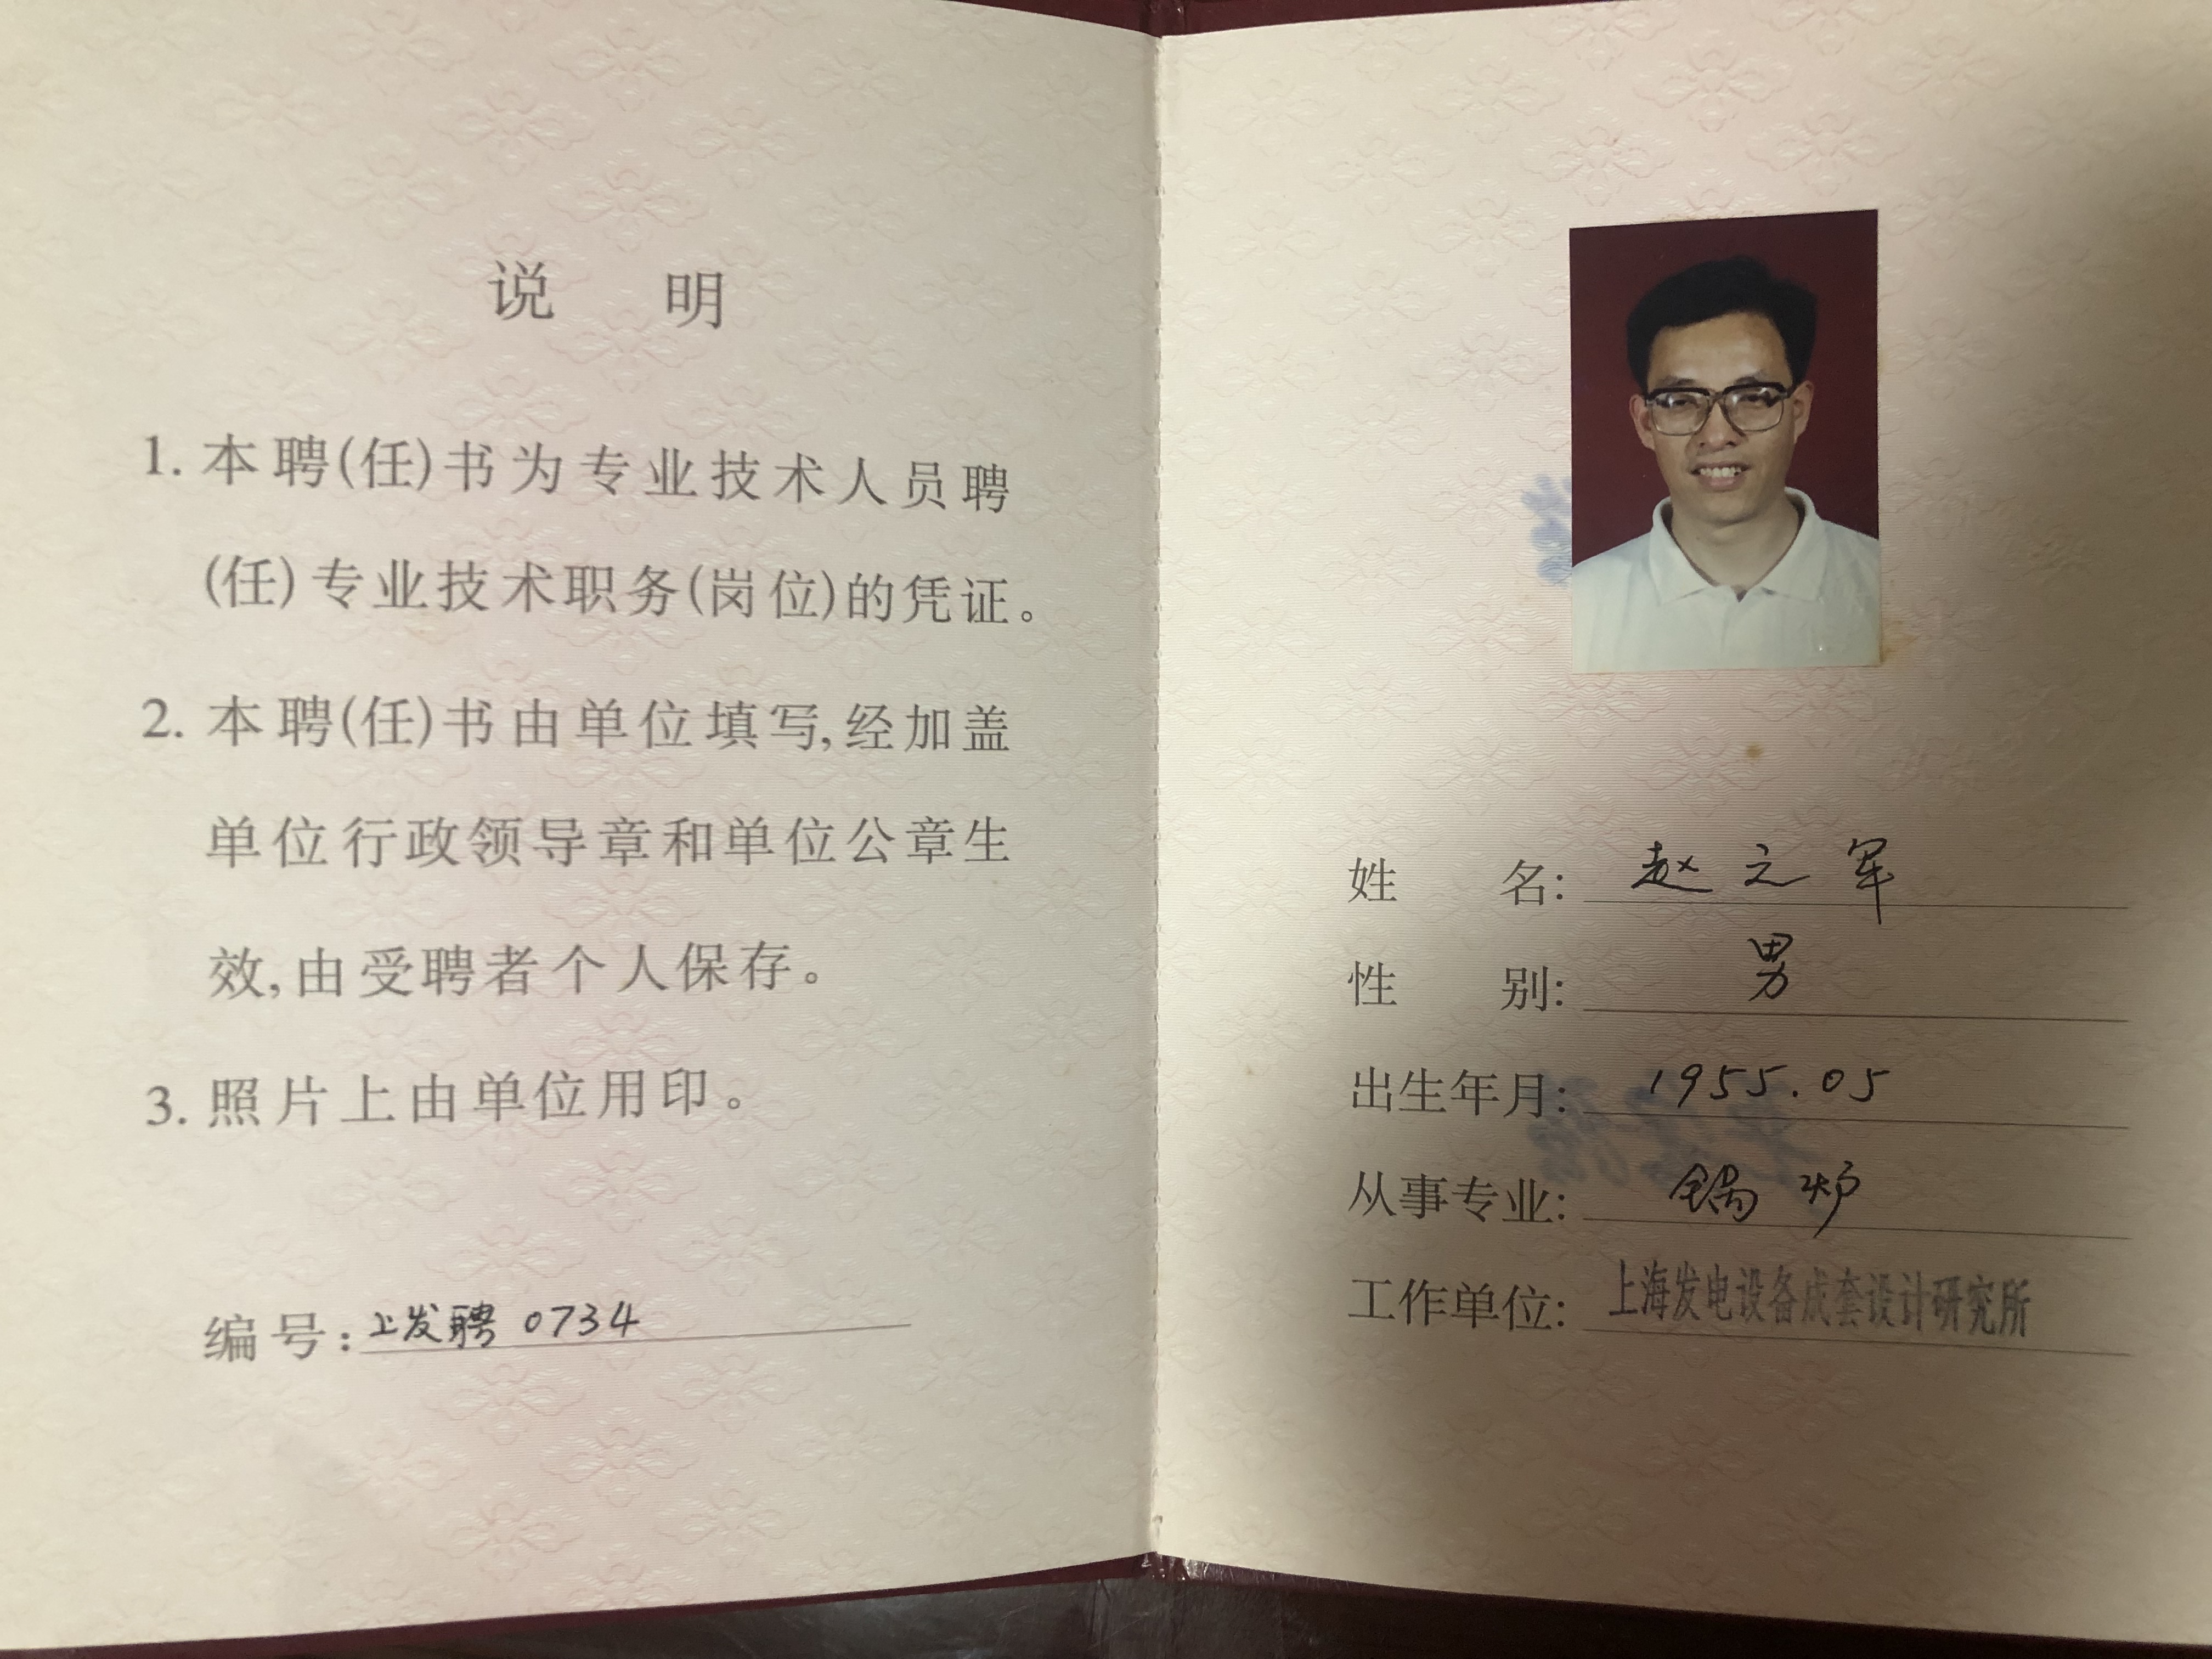 说 明
1. 本聘(任)书为专业技术人员聘
(任)专业技术职务(岗位)的凭证。
2. 本聘(任)书由单位填写,经加盖
单位行政领导章和单位公章生
效,由受聘者个人保存。
3. 照片上由单位用印。
编号:上发聘 0734
姓 名: 赵之军
性 别: 男
出生年月: 1955.05
从事专业: 锅炉
工作单位: 上海发电设备成套设计研究所